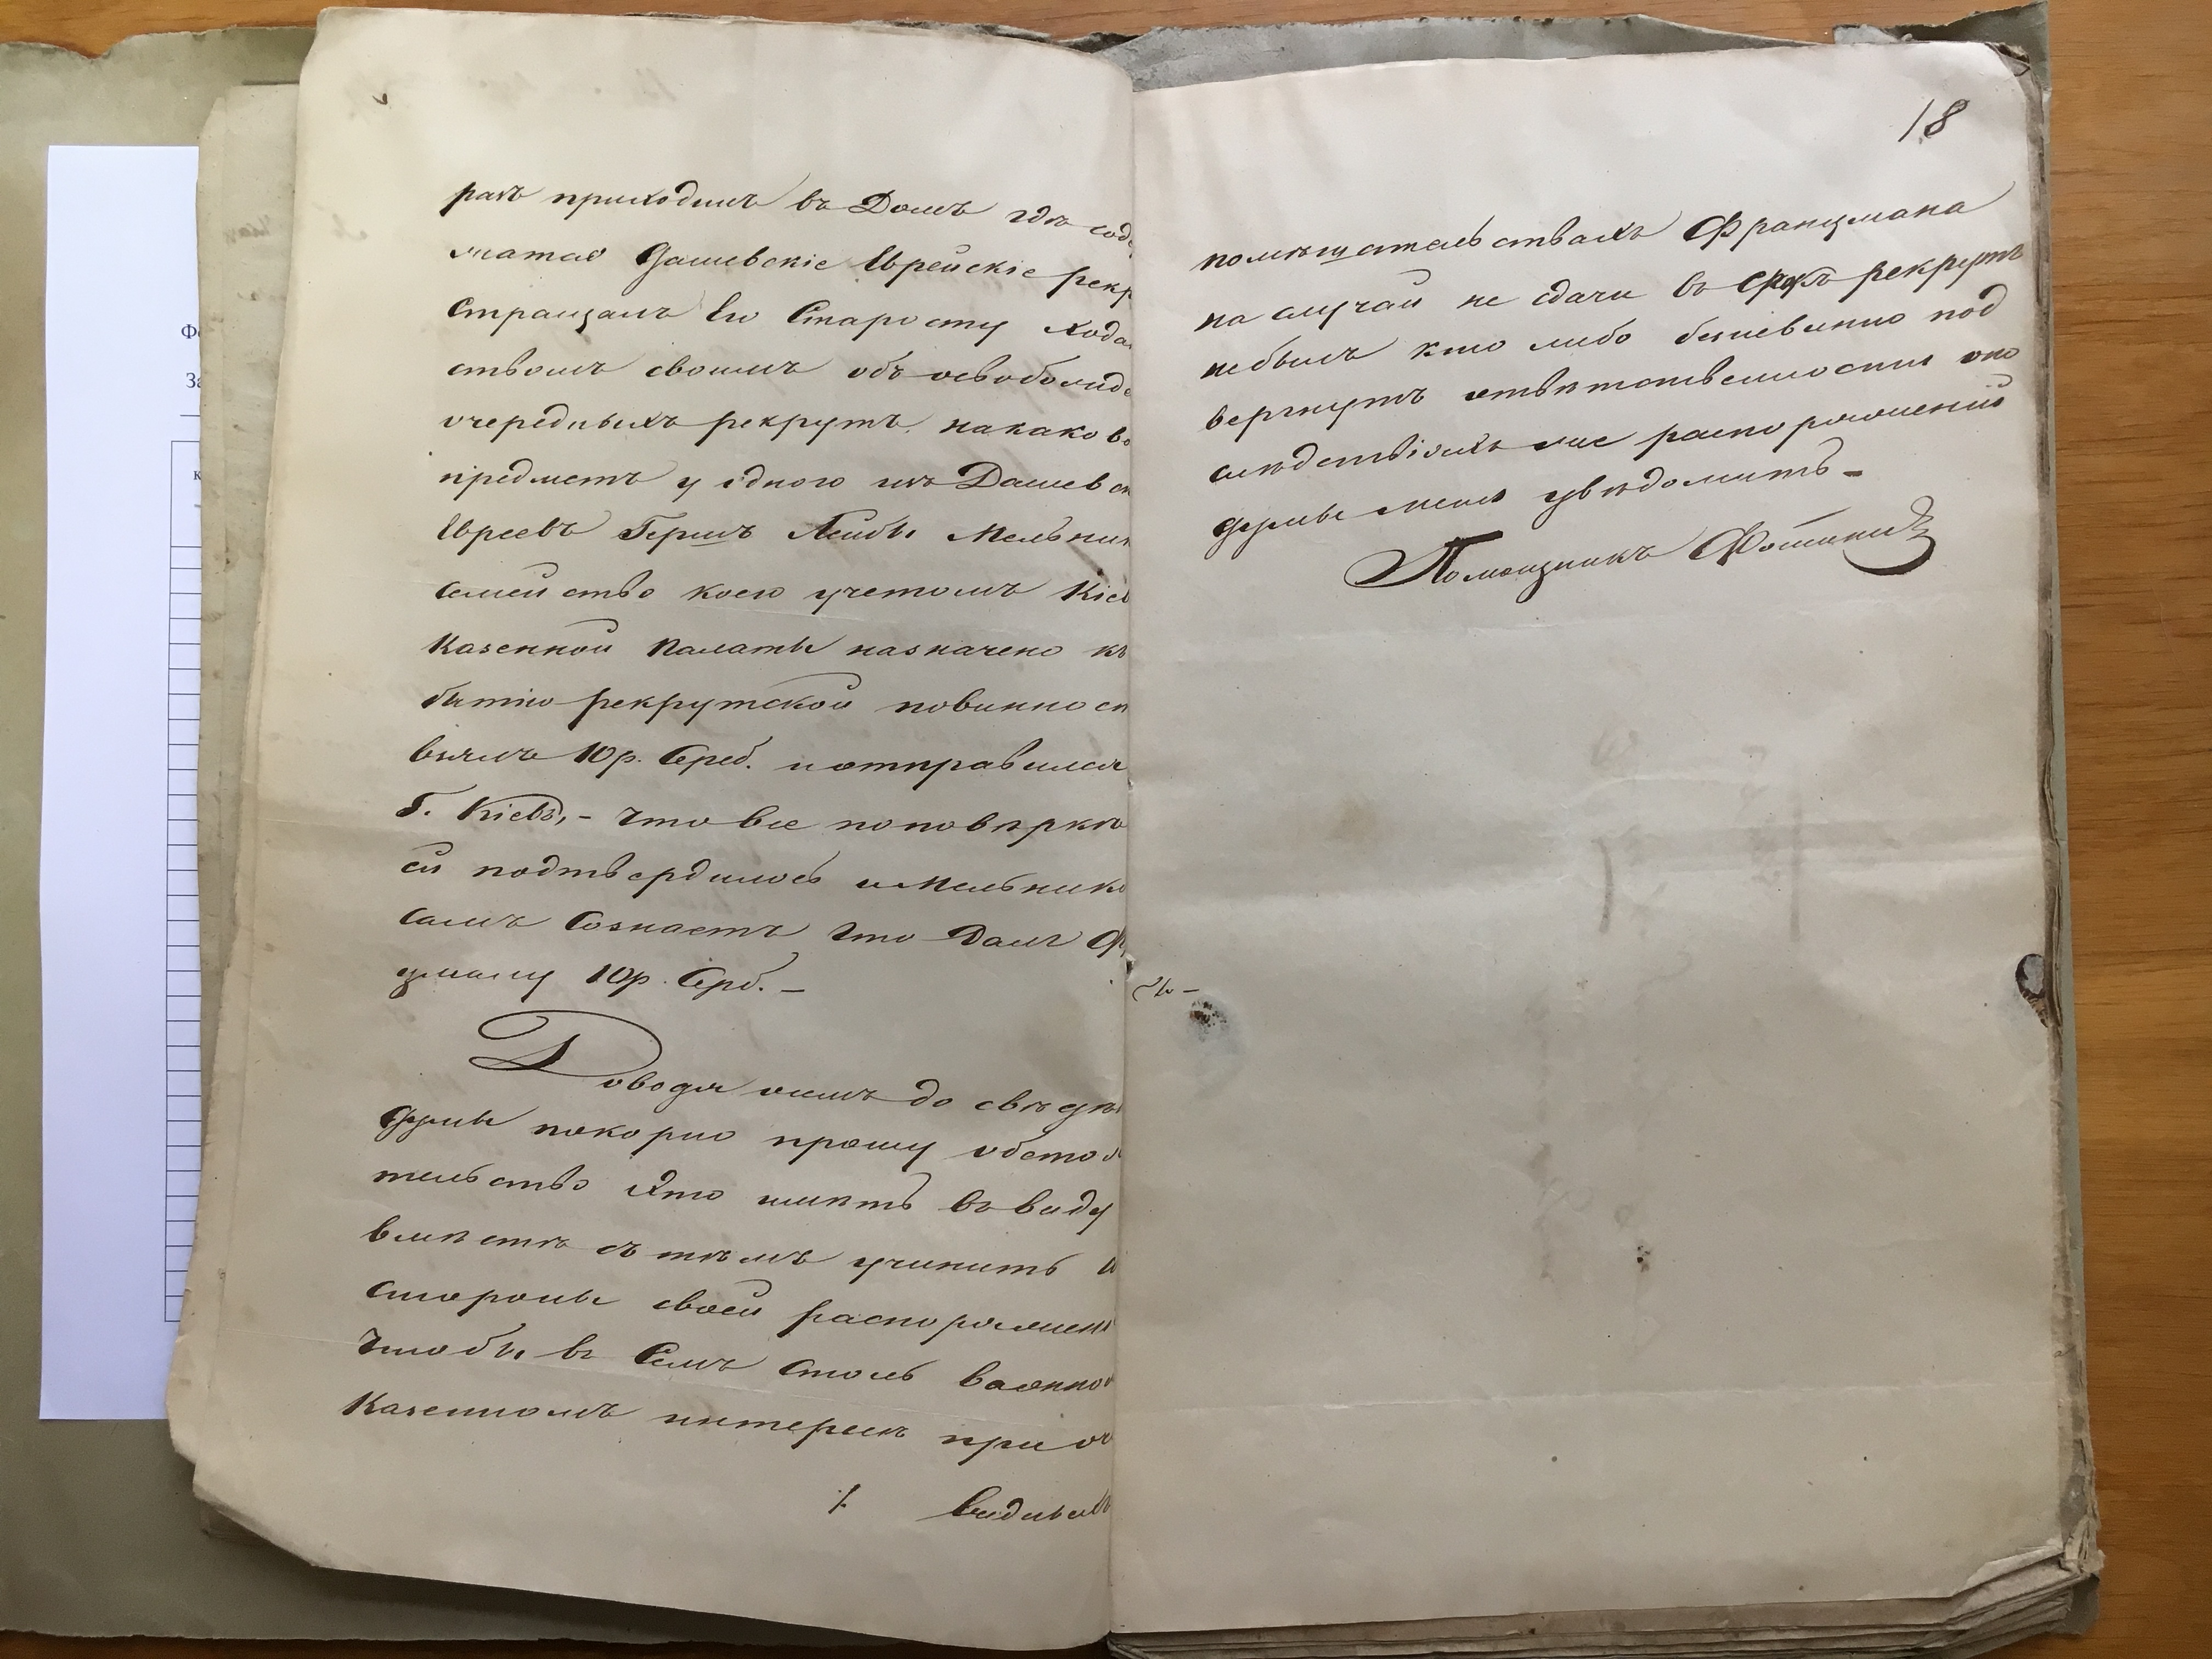 разъ приходилъ въ Домъ гдѣ соде
жатся Дашевскіе Еврейскіе рекр
Стращалъ Его Старосту хода
ствомъ своимъ объ освобожде
очередныхъ рекрутъ, накаково
предметъ у одного изъ Дашевск
Евреевъ Гершъ Лейбы Мельник
Семейство коего учетомъ Кіев
Казенной Палаты назначено къ
бытію рекрутской повинност
взялъ 10 р. Сереб. и отправился
Г. Кіевъ, - что все поповѣркѣ
ей подтвердилось и Мельнико
самъ Сознаетъ что Далъ Фр
цману 10 р. Серб. -
Доводя симъ до свѣдѣ
Думы покорно прошу обстоя
тельство это имѣть въ виду
вмѣстѣ съ тѣмъ учинить со
стороны своей распоряжені
Чтобы въ Семъ столь важно
Казенномъ интересѣ при оч
видныхъ
18
помѣшательствахъ Францмана
на случай не сдачи въ Срокъ рекрутъ
небылъ кто либо безневинно под
вергнутъ отвѣтственности опо
слѣдствіяхъ же распоряженій
Думы меня увѣдомить -
Помощникъ